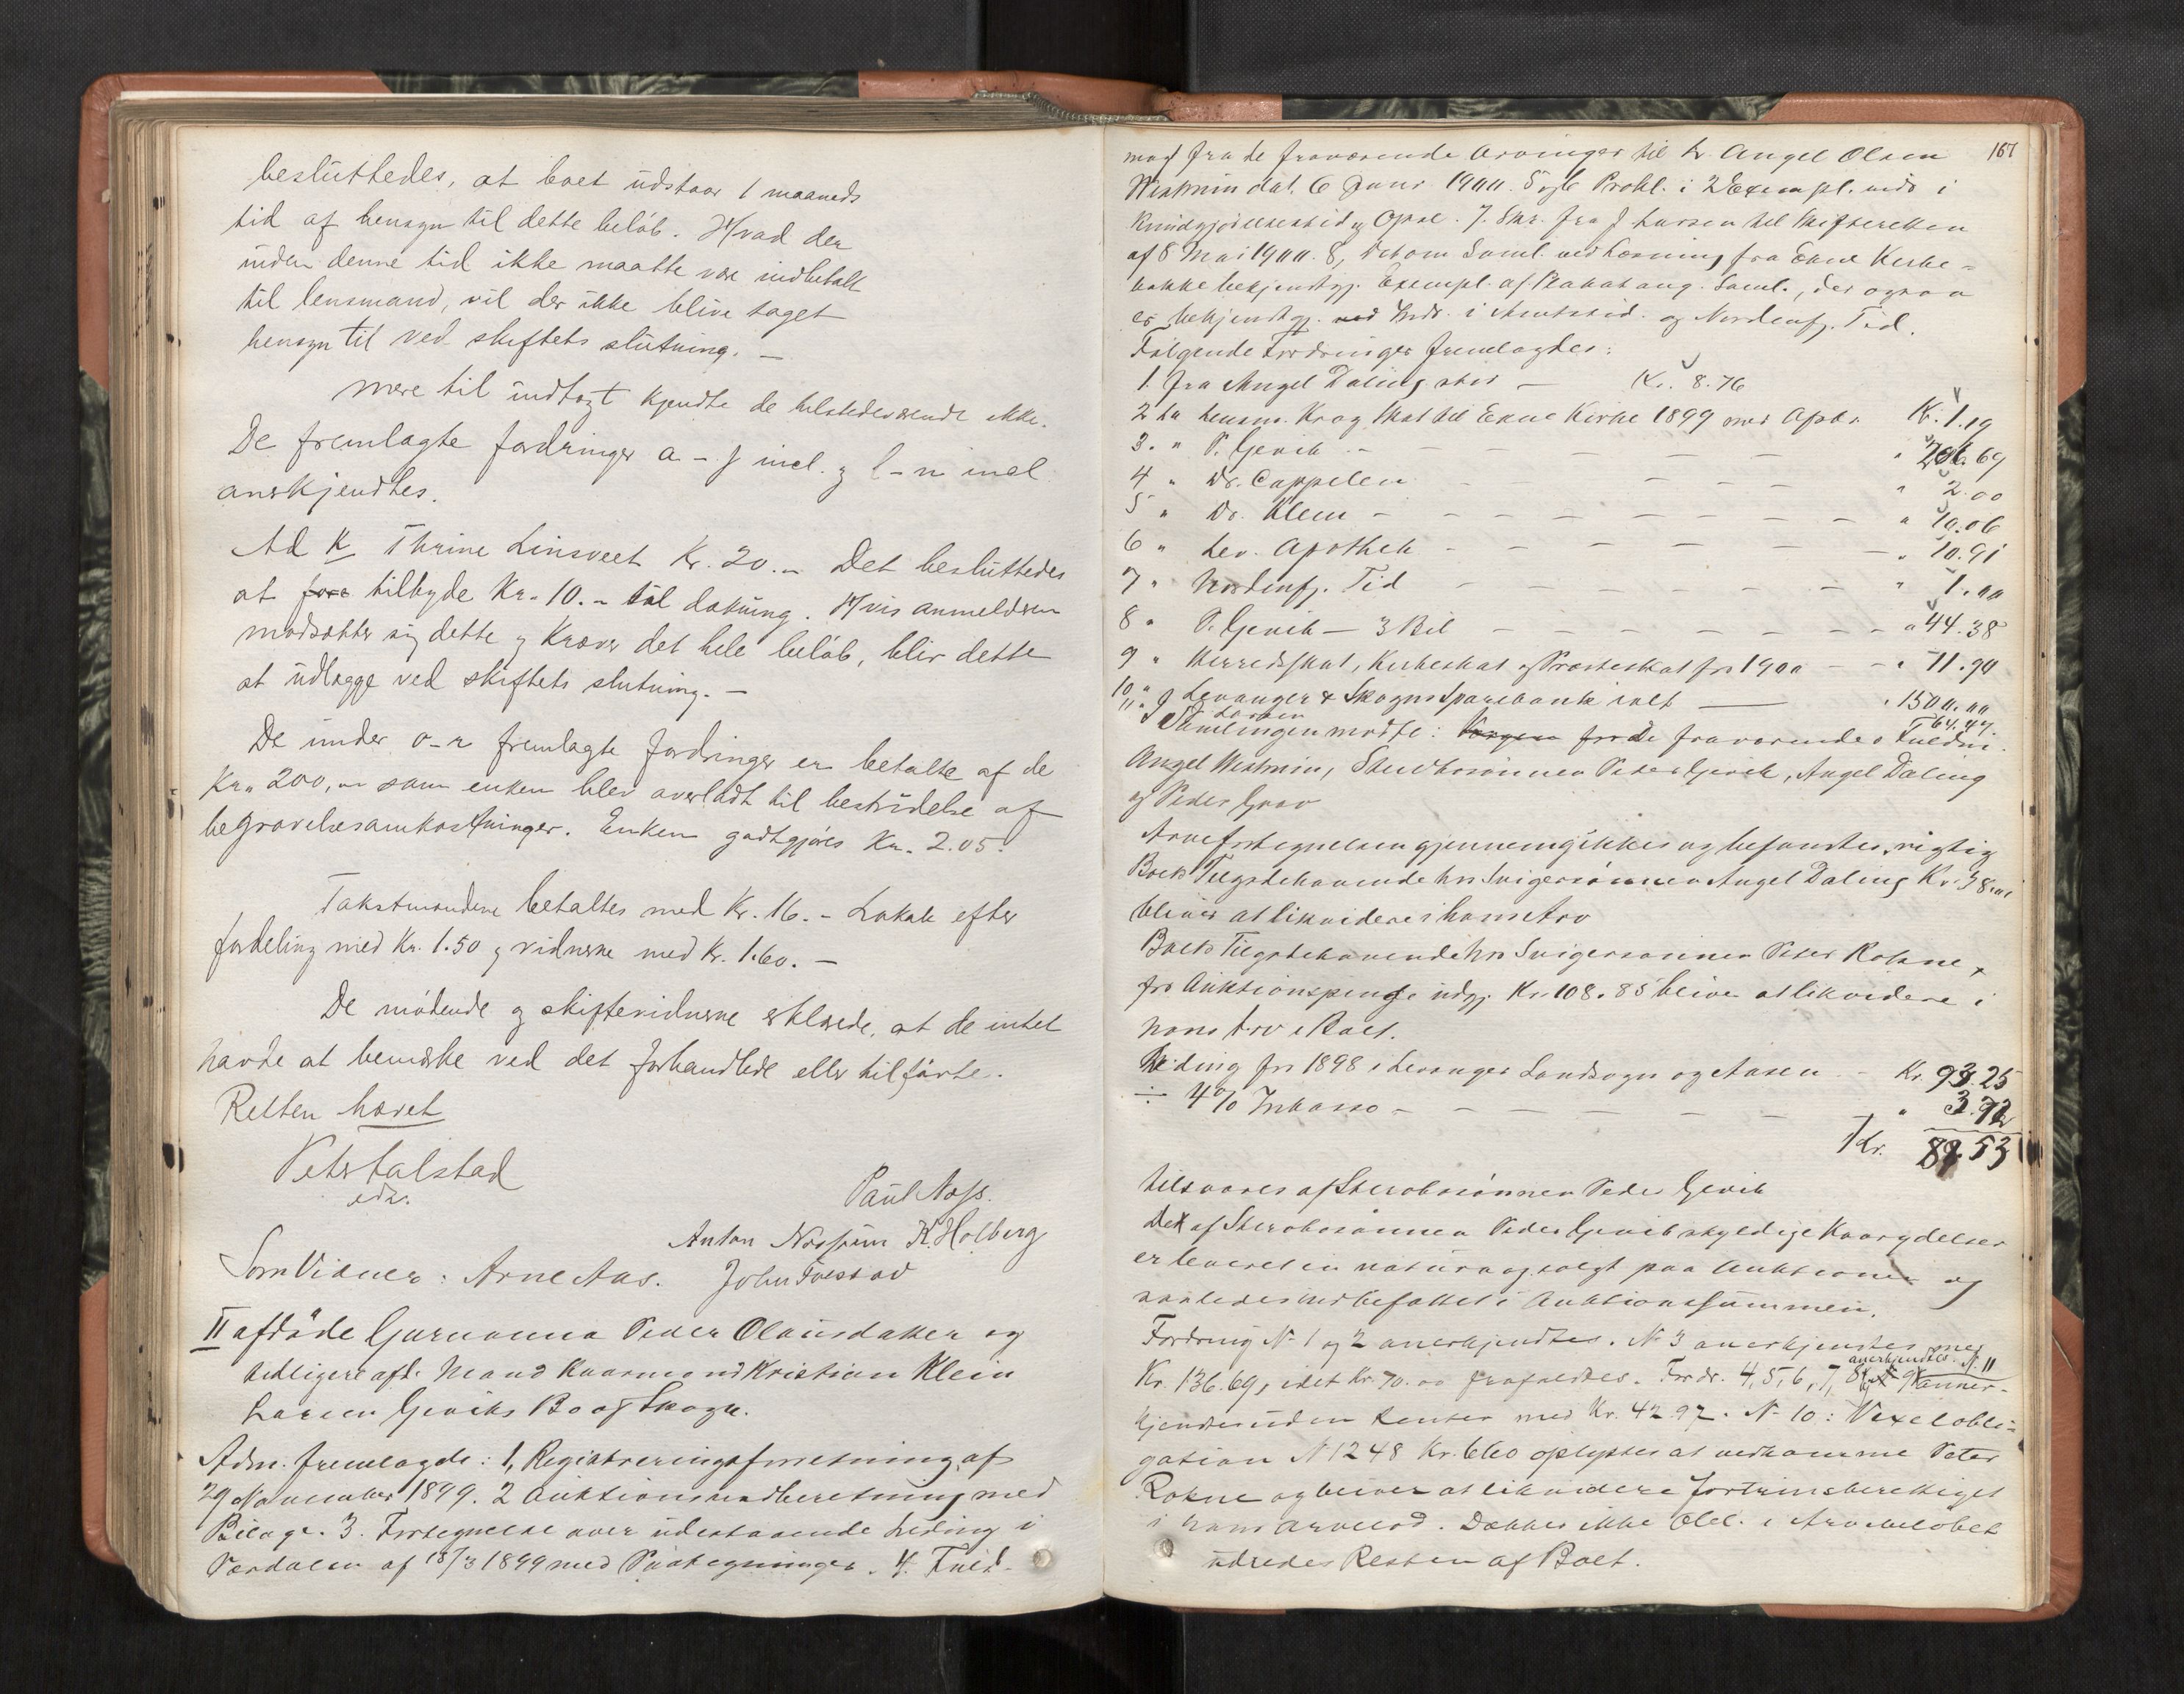 besluttedes, at boet udstaar 1 maaneds
tid af hensyn til dette beløb. Hvad der
inden denne tid ikke maatte være indbetalt
til lensmand, vil der ikke blive taget
hensyn til ved skiftets slutning. –
Mere til indtægt kjendte de tilstedeværende ikke.
De fremlagte fordringer a – j incl. og l – n incl
anerkjendtes.
Ad K Thrine Linsveet Kr. 20.– Det besluttedes
at tilbyde Kr. 10.– til dækning. Hvis anmelderen
modsætter sig dette og kræver det hele beløb, blir dette
at udlægge ved skiftets slutning. –
De under o–r fremlagte fordringer er betalte af de
Kr. 200,00 som enken blev overladt til bestridelse af
begravelsesomkostninger. Enken godtgjøres Kr. 2.05.
Takstmændene betaltes med Kr. 16.– Lokale efter
fordeling med Kr. 1.50 og vidnerne med Kr. 1.60. –
De mødende og skiftevidnerne erklærede, at de intet
havde at bemærke ved det forhandlede eller tilførte.
Retten hævet
Peter Falstad
edr.
Paul Næss.
Anton Nossum K. Holberg
Som Vidner: Arne Aas. John Tvestad
II afdøde Gurianna Peder Olausdatter og
tidligere afd. Mand Kaarmand Kristian Klein
Larsen Gjeviks Bo af Skogn.
Adm. fremlagde: 1, Registreringsforretning af
29 November 1899. 2 Auktionsindberetning med
Bilage. 3. Fortegnelse over udestaaende Leding i
Værdalen af 18/3 1899 med Paategninger. 4. Fuld-
167
magt fra de fraværende Arvinger til Hr. Angel Olsen
Vestmin dat. 6 Juni 1900. 5 og 6 Prokl. i 2 Exempl. inds i
Kundgjørelsestid og Opsl. 7. Skr. fra J Larsen til Skifteretten
af 8 Mai 1900. 8, Det om Saml. ved Læsning fra Ekne Kirke-
bakke bekjendtgj. Exempl. af Plakat ang. Saml., der ogsaa
er bekjendtgj. ved Inds. i Amtstid. og Nordenfj. Tid.
Følgende Fordringer fremlagdes:
1. fra Angel Daling stor – Kr. 8.76
2 fra Lensm. Krog Skat til Ekne Kirke 1899 med Kr. 1.19
3. " P. Gjevik – – – – – " 206.69
4 " Dr. Cappelen – – – – " 2.00
5 " Dr. Klem – – – – – " 10.06
6 " Lev. Apothek – – – – – " 10.91
7 " Nordenfj. Tid – – – – – " 1.00
8 " P. Gjevik – 3 Bil – – – – – " 44.38
9 " Herredsskat, Kirkeskat og Præsteskat for 1900 – – " 11.90
10 " Levanger & Skogns Sparebank ialt – " 1500.00
11 " J Larsen 64.44.
I Samlingen mødte: de fraværendes Fuldm.
Angel Vestmin, Stedsønnen Peder Gjevik, Angel Daling
og Peder Grav
Arvefortegnelsen gjennemgikkes og befandtes rigtig
Boets Tilgodehavende hos Svigersønnen Angel Daling Kr. 38.00
bliver at likvidere i hans Arv
Boets Tilgodehavende hos Svigersønnen Peter Rokne,
for Auktionspenge udgj. Kr. 108.85 bliver at likvidere i
hans Arv i Boet.
Leding for 1898 i Levanger Landsogn og Aasen – Kr. 93.25
÷ 4% Inkasso – – – – – – " 3.72
Kr. 89.53
tilsvares af Stervbosønnen Peder Gjevik
Det af Stervbosønnen Peder Gjevik skyldige Kaarydelser
er leveret in natura og solgt paa Auktionen og
saaledes indbefattet i Auktionssummen.
Fordring N. 1 og 2 anerkjendtes. N. 3 anerkjendtes med
Kr. 136.69, idet Kr. 70.00 frafaldtes. Fordr. 4, 5, 6, 7, 8 og 9 anerkjendtes. N. 11 aner-
kjendtes uden Renter med Kr. 42.97. N. 10: Vexelobli-
gation N 1248 Kr. 660 oplystes at vedkomme Peter
Rokne og bliver at likvidere fortrinsberettiget
i hans Arvelod. Dækkes ikke Obl. i Arvebeløbet
udredes Resten af Boet.